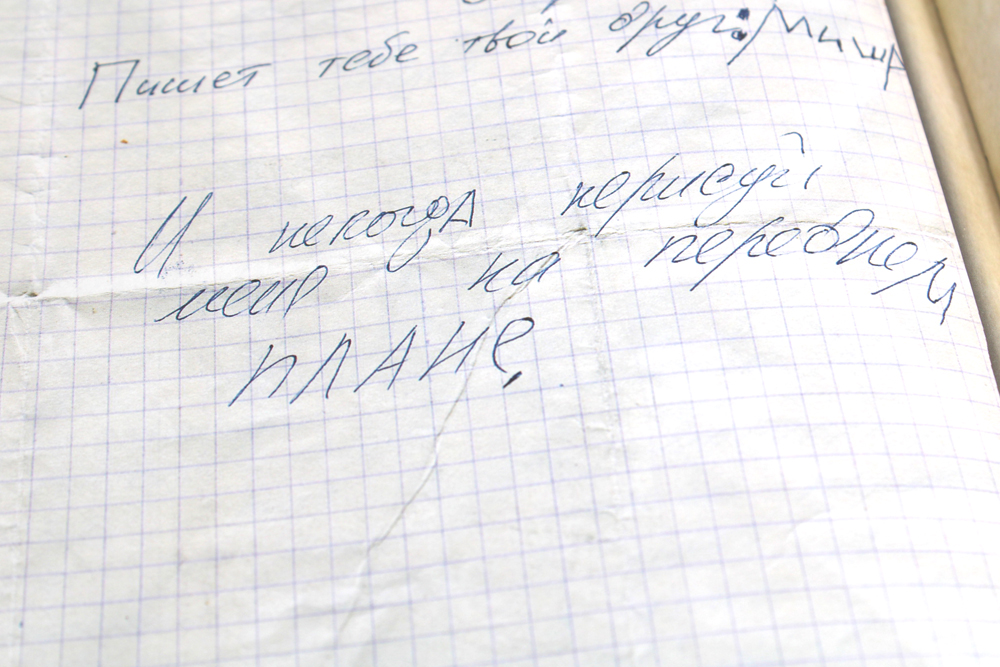 Пишет тебе твой друг: Миша
И некогда нерисуй
меня на переднем
ПЛАНе,